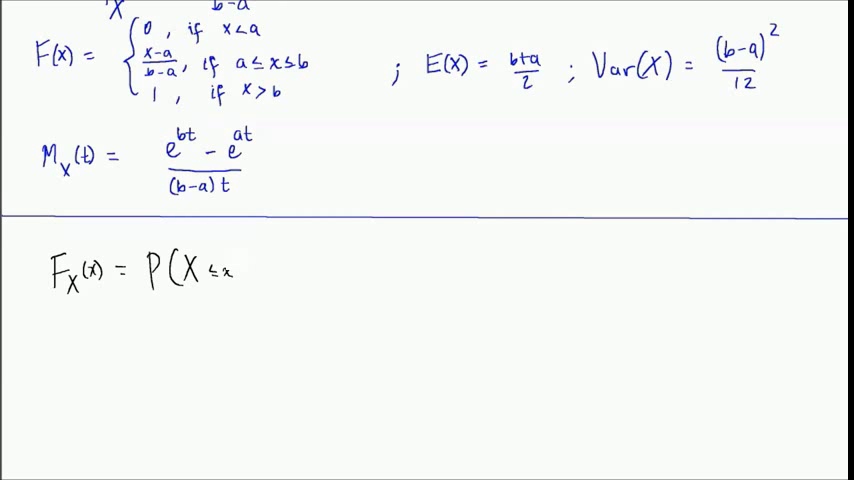 X b-a
F(x) = { 0, if x<a
x-a/b-a, if a≤x≤b ; E(X) = b+a/2 ; Var(X) = (b-a)²/12
1, if x>b
M_X(t) = e^bt - e^at / (b-a)t
F_X(x) = P(X ≤x